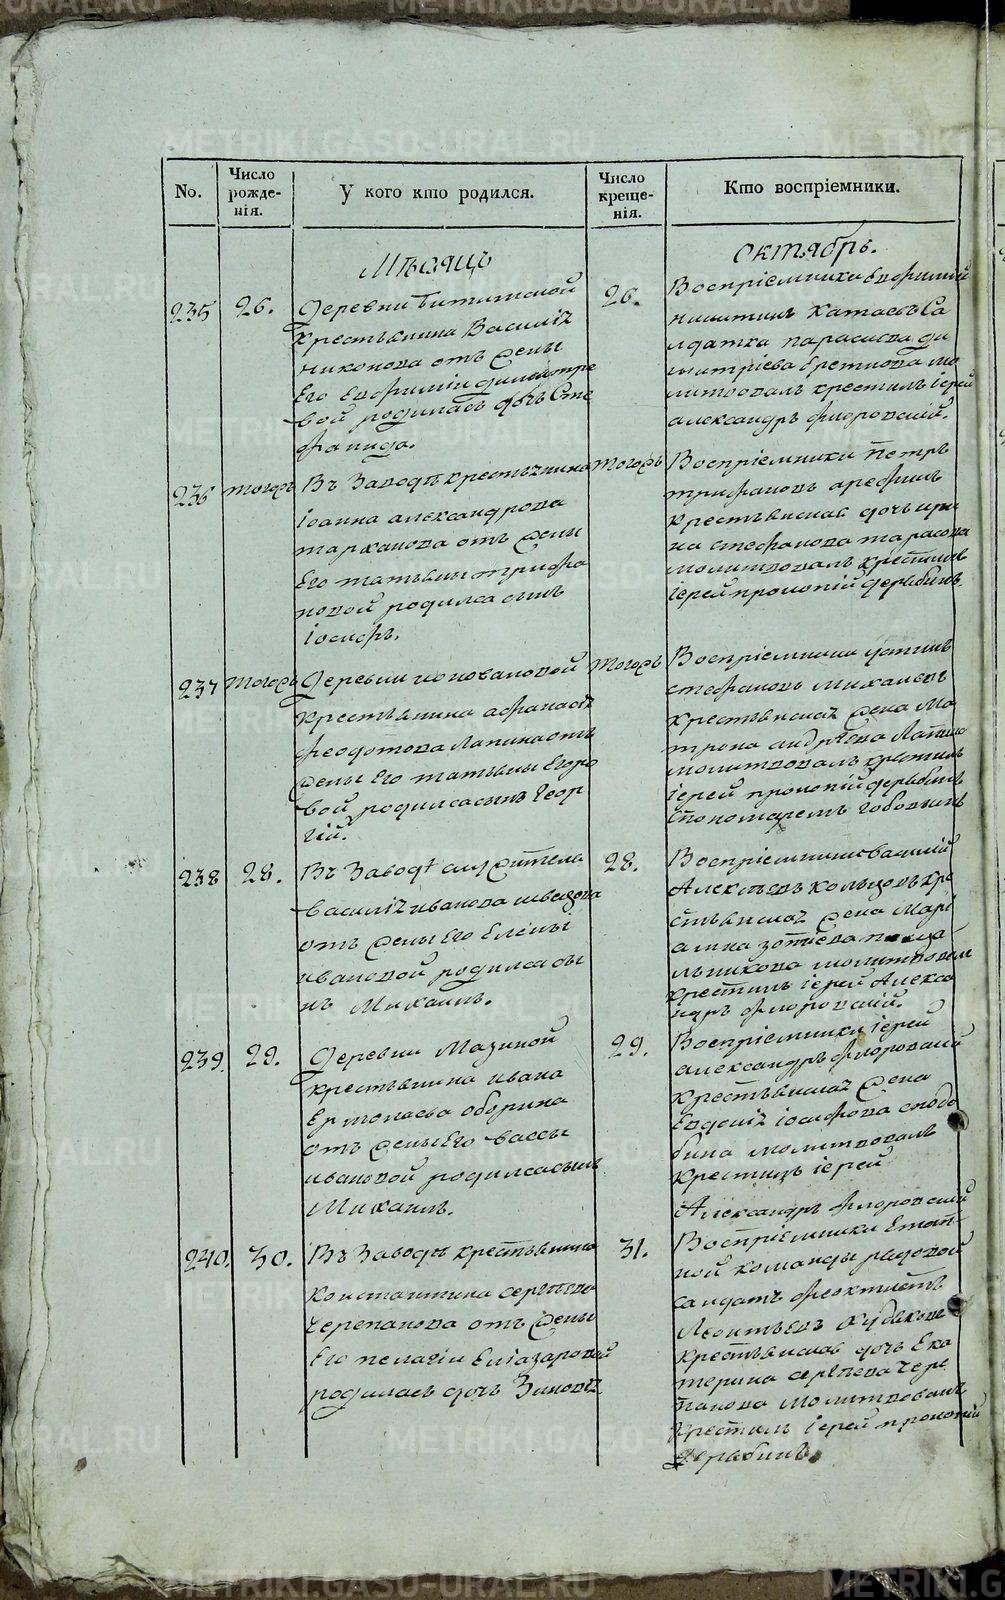 METRIKI.GASO-URAL.RU
No.
Число рожде-нія.
У кого кто родился.
Число креще-нія.
Кто воспріемники.
Мѣсяцъ
октябрь.
235
26.
Деревни
крестьянина Василія
никонова отъ жены
Его Евфиміи
вой родилась дочь Сте
фанида.
26.
Воспріемники Евфимій
никитинъ катаевъ Са
лдатка параскева ди
митріева мо
литвовалъ крестилъ іерей
александръ флоровскій.
236
тогожъ
Въ Заводѣ крестьянина
іоанна александрова
тарханова отъ жены
Его татьяны трифа
новой родился сынъ
іосифъ.
тогожъ
Воспріемники петръ
трифановъ арефинъ
крестьянская дочь ири
на стефанова тарасова
молитвовалъ крестилъ
іерей прокопій дерябинъ.
237
тогожъ
Деревни коноваловой
крестьянина афанасія
феодотова Лапина отъ
жены Его татьяны Егоро
вой родился сынъ геор
гій.
тогожъ
Воспріемники устинъ
стефановъ михалевъ
крестьянская жена Ма
трона андрѣева Лапина
молитвовалъ крестилъ
іерей прокопій дерябинъ
спономаремъ
238
28.
Въ Заводѣ служителя
василія иванова швецова
отъ жены Его Елены
ивановой родился сы
нъ Михаилъ.
28.
Воспріемники василій
Алексѣевъ кольцовъ кре
стьянская жена Марі
амна зотиева
льникова молитвовалъ
крестилъ іерей Алекса
ндръ флоровскій.
239.
29.
Деревни Мазиной
крестьянина ивана
Ермолаева оборина
отъ жены Его вассы
ивановой родился сынъ
Михаилъ.
29.
Воспріемники іерей
александръ флоровскій
крестьянская жена
Евдокія іосифова сподо
бина молитвовалъ
крестилъ іерей
Александръ флоровскій
240.
30.
Въ Заводѣ крестьянина
константина сергѣева
черепанова отъ жены
Его пелагіи Еліазаровой
родилась дочь Зиновія.
31.
Воспріемники Етап-
ной команды рядовой
салдатъ феоктистъ
Леонтьевъ худяковъ
крестьянская дочь Ека
терина сергѣева Чере
панова молитвовалъ
крестилъ іерей прокопій
дерябинъ.